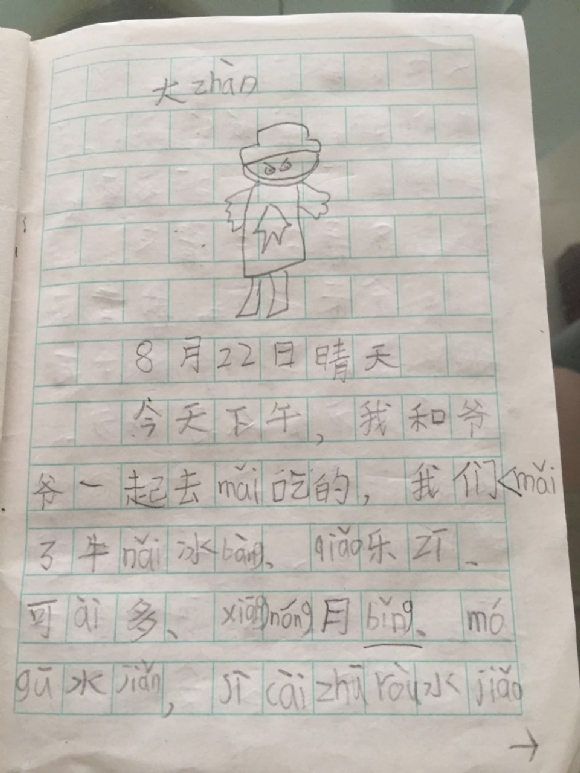 大zhàn
8月22日晴天
今天下午，我和爷
爷一起去mǎi吃的，我们<mǎi
了牛nǎi冰bàng、qiǎo乐zī、
可ài多、xiāngnóng月bǐng、mó
gū水jiǎn，jì cài zhū ròu水jiǎo
→